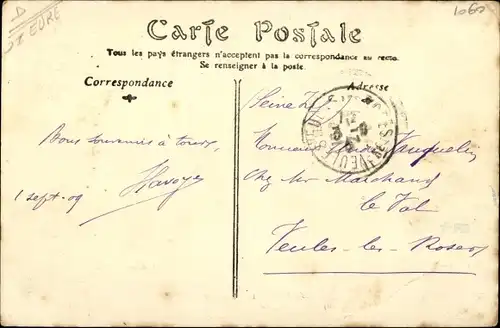 D
ST EURE
1060
Carte Postale
Tous les pays étrangers n'acceptent pas la correspondance au recto.
Se renseigner à la poste.
Correspondance
Adresse
Bons souvenirs à tous,
1 sept. 09
Seine Inf.
Monsieur
Chez Mr Marchand
le Val
Veules-les-Roses
VEULES-LES-ROSES